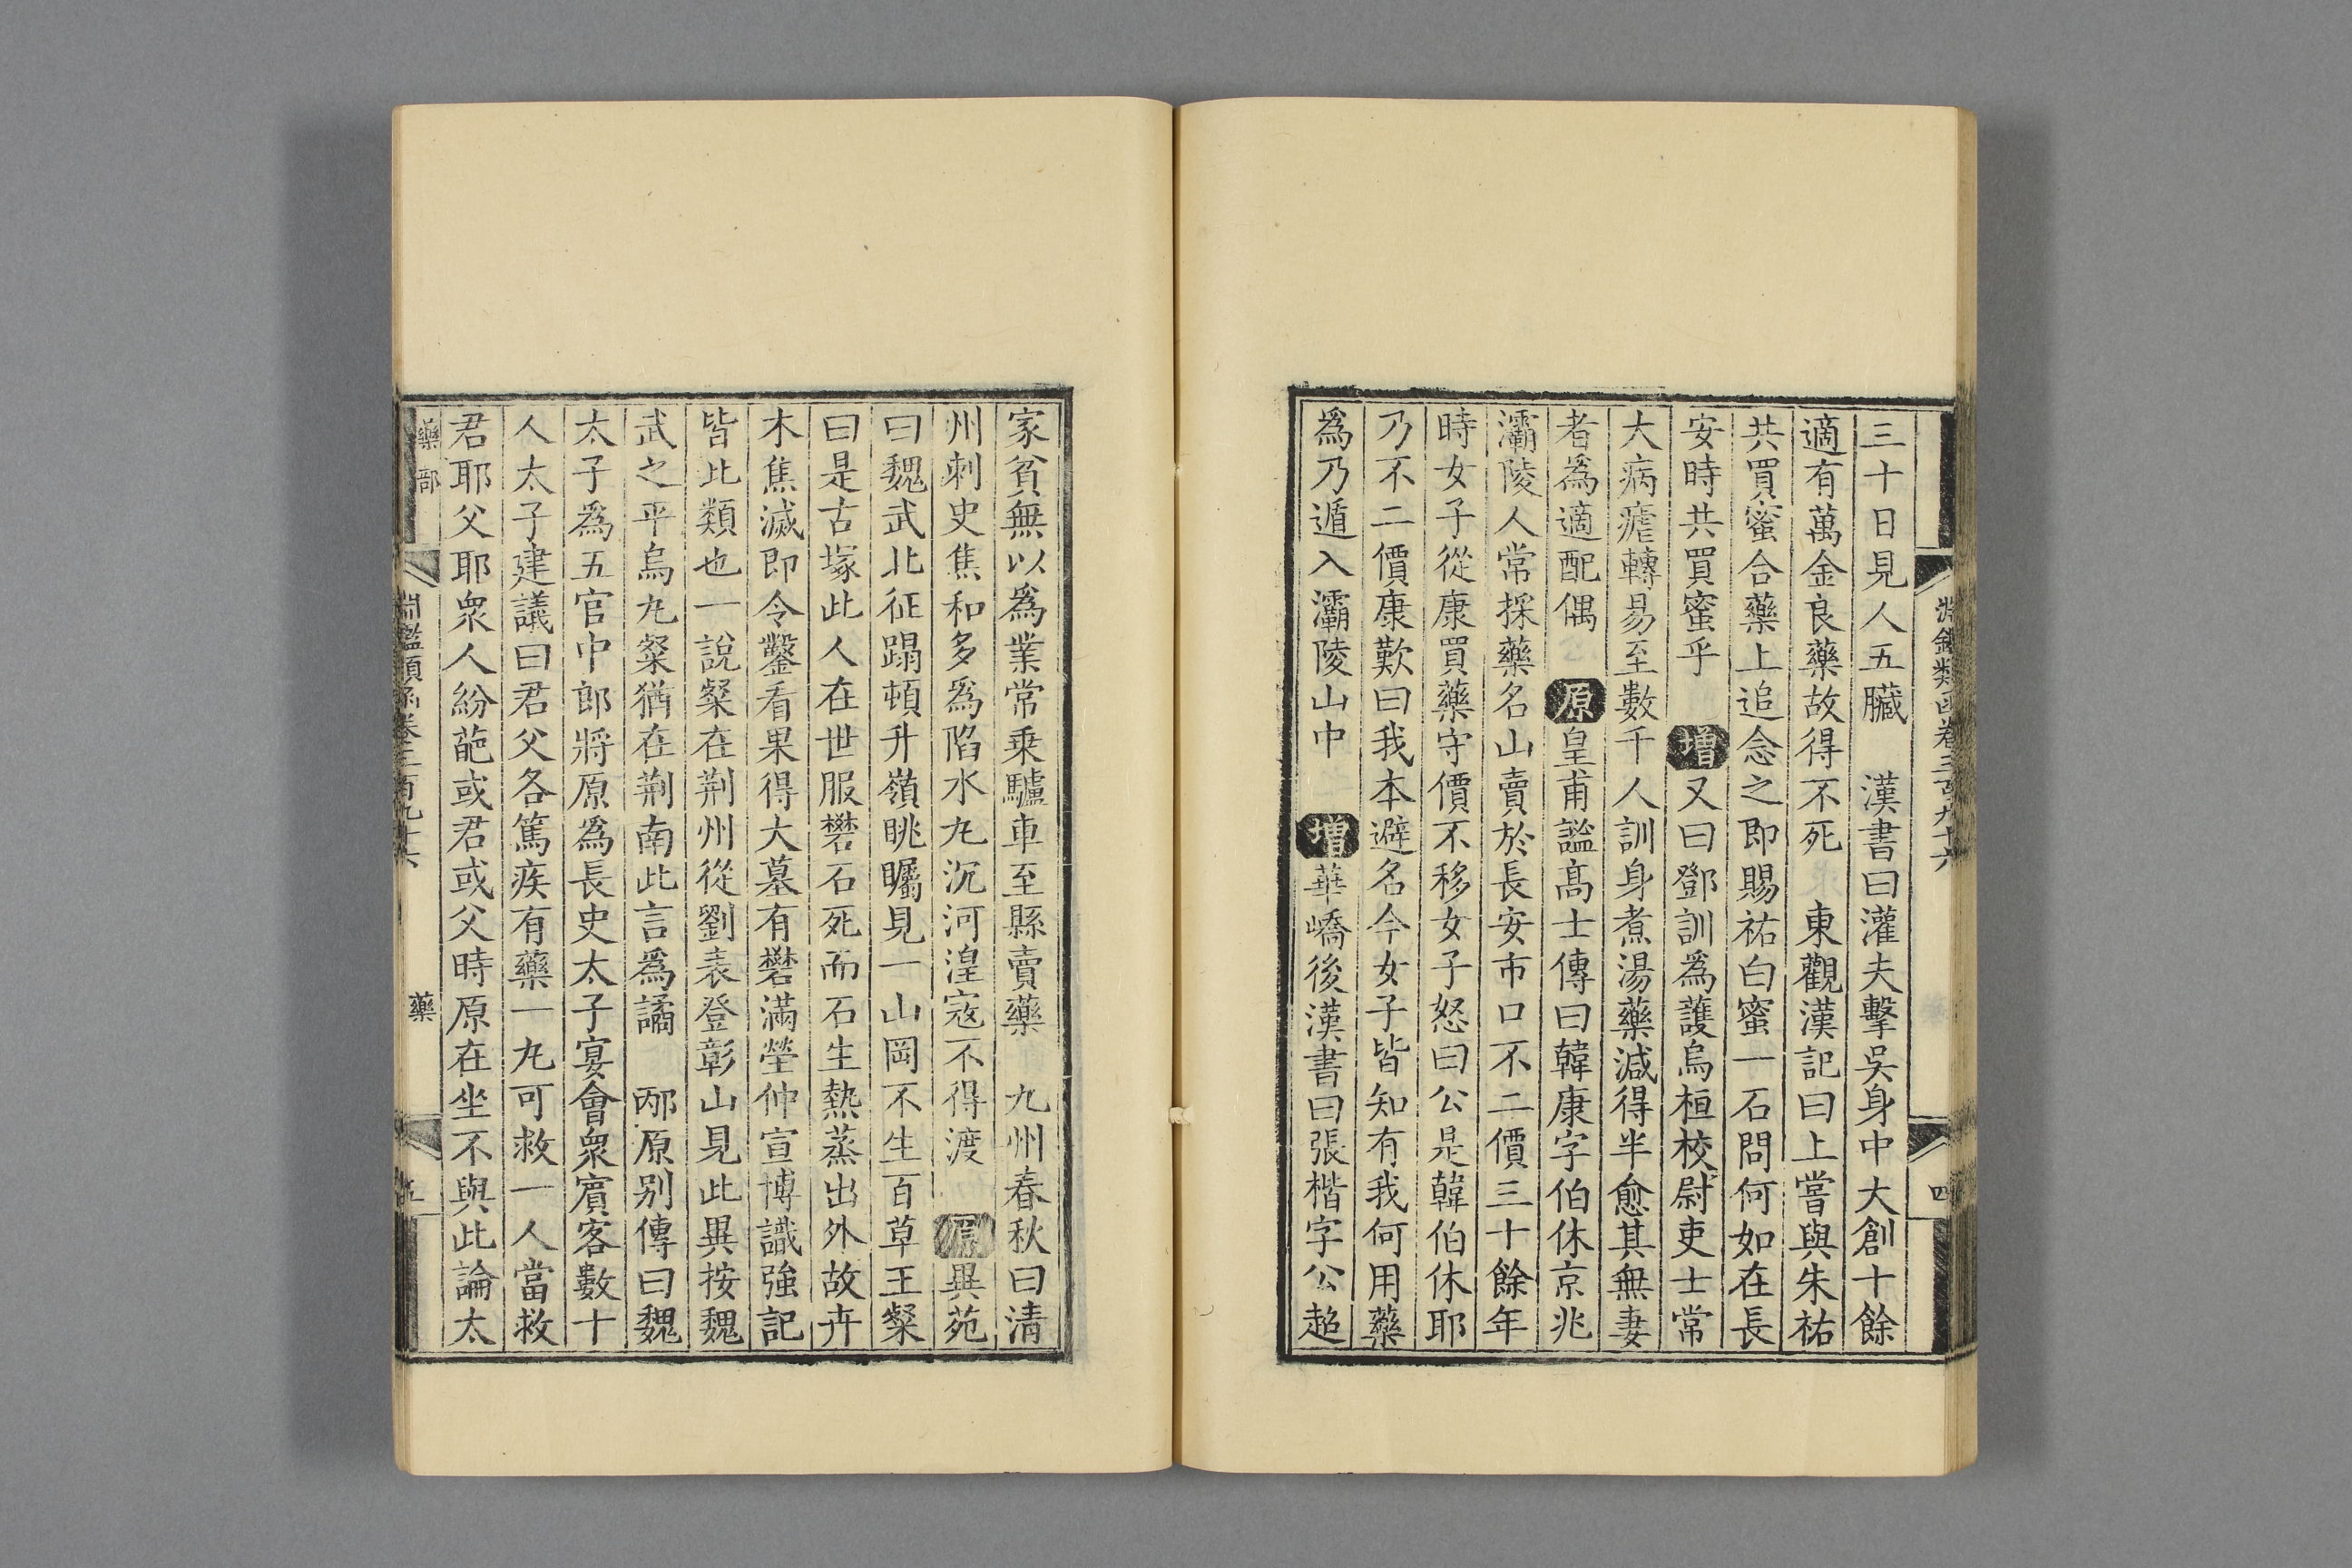 淵鑑類函卷三百九十六
四
三十日見人五臟　漢書曰灌夫擊吳身中大創十餘
適有萬金良藥故得不死　東觀漢記曰上嘗與朱祐
共買蜜合藥上追念之即賜祐白蜜一石問何如在長
安時共買蜜乎　增又曰鄧訓爲護烏桓校尉吏士常
大病瘧轉易至數千人訓身煮湯藥減得半愈其無妻
者爲適配偶　原皇甫謐高士傳曰韓康字伯休京兆
灞陵人常採藥名山賣於長安市口不二價三十餘年
時女子從康買藥守價不移女子怒曰公是韓伯休耶
乃不二價康歎曰我本避名今女子皆知有我何用藥
爲乃遁入灞陵山中　增華嶠後漢書曰張楷字公超
家貧無以爲業常乗驢車至縣賣藥　九州春秋曰清
州刺史焦和多爲陷水丸沉河湟寇不得渡　原異苑
曰魏武北征蹋頓升嶺眺矚見一山岡不生百草王粲
曰是古塚此人在世服礬石死而石生熱蒸出外故卉
木焦滅即令鑿看果得大墓有礬滿塋仲宣博識強記
皆此類也一說粲在荆州從劉表登彰山見此異按魏
武之平烏丸粲猶在荆南此言爲譎　邴原別傳曰魏
太子爲五官中郎將原爲長史太子宴會衆賓客數十
人太子建議曰君父各篤疾有藥一丸可救一人當救
君耶父耶衆人紛葩或君或父時原在坐不與此論太
藥部
淵鑑類函卷三百九十六
藥
五